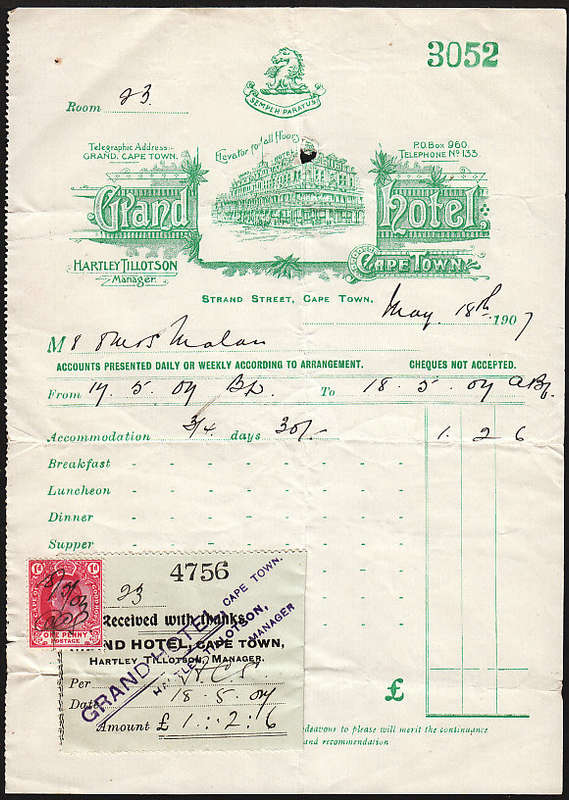 3052
SEMPER PARATUS
Room 23
Elevator to all Floors
Telegraphic Address:-
GRAND, CAPE TOWN.
P.O. Box 960.
TELEPHONE No 133.
Grand Hotel.
HARTLEY TILLOTSON
Manager.
CAPE TOWN
STRAND STREET, CAPE TOWN,
May 18th 1907
M Malan
ACCOUNTS PRESENTED DAILY OR WEEKLY ACCORDING TO ARRANGEMENT. CHEQUES NOT ACCEPTED.
From 17. 5. 07 To 18. 5. 07
Accommodation 3/4 days 30/- 1. 2 6
Breakfast
Luncheon
Dinner
Supper
1d 1d
ONE PENNY
POSTAGE
4756
23
Received with thanks
GRAND HOTEL, CAPE TOWN,
HARTLEY TILLOTSON, MANAGER.
Per
Date 18. 5. 07
Amount £ 1 : 2 : 6
GRAND HOTEL, CAPE TOWN.
HARTLEY TILLOTSON,
MANAGER
£
deavours to please will merit the continuance
and recommendation